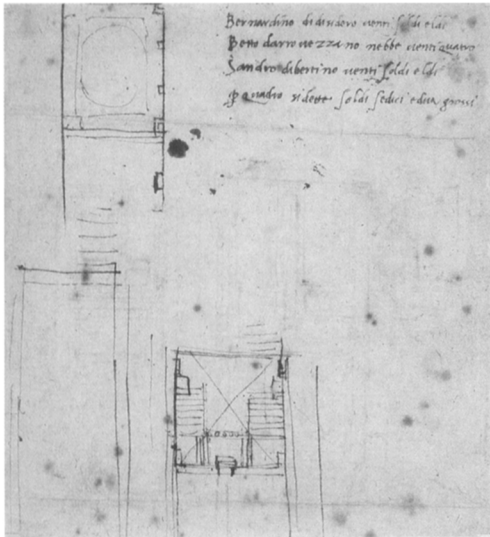 Bernardino di venti soldi eldi
Betto darrovezzano nebbe venti quatro
Sandro di bertino venti soldi eldi
soldi sedici e dua grossi